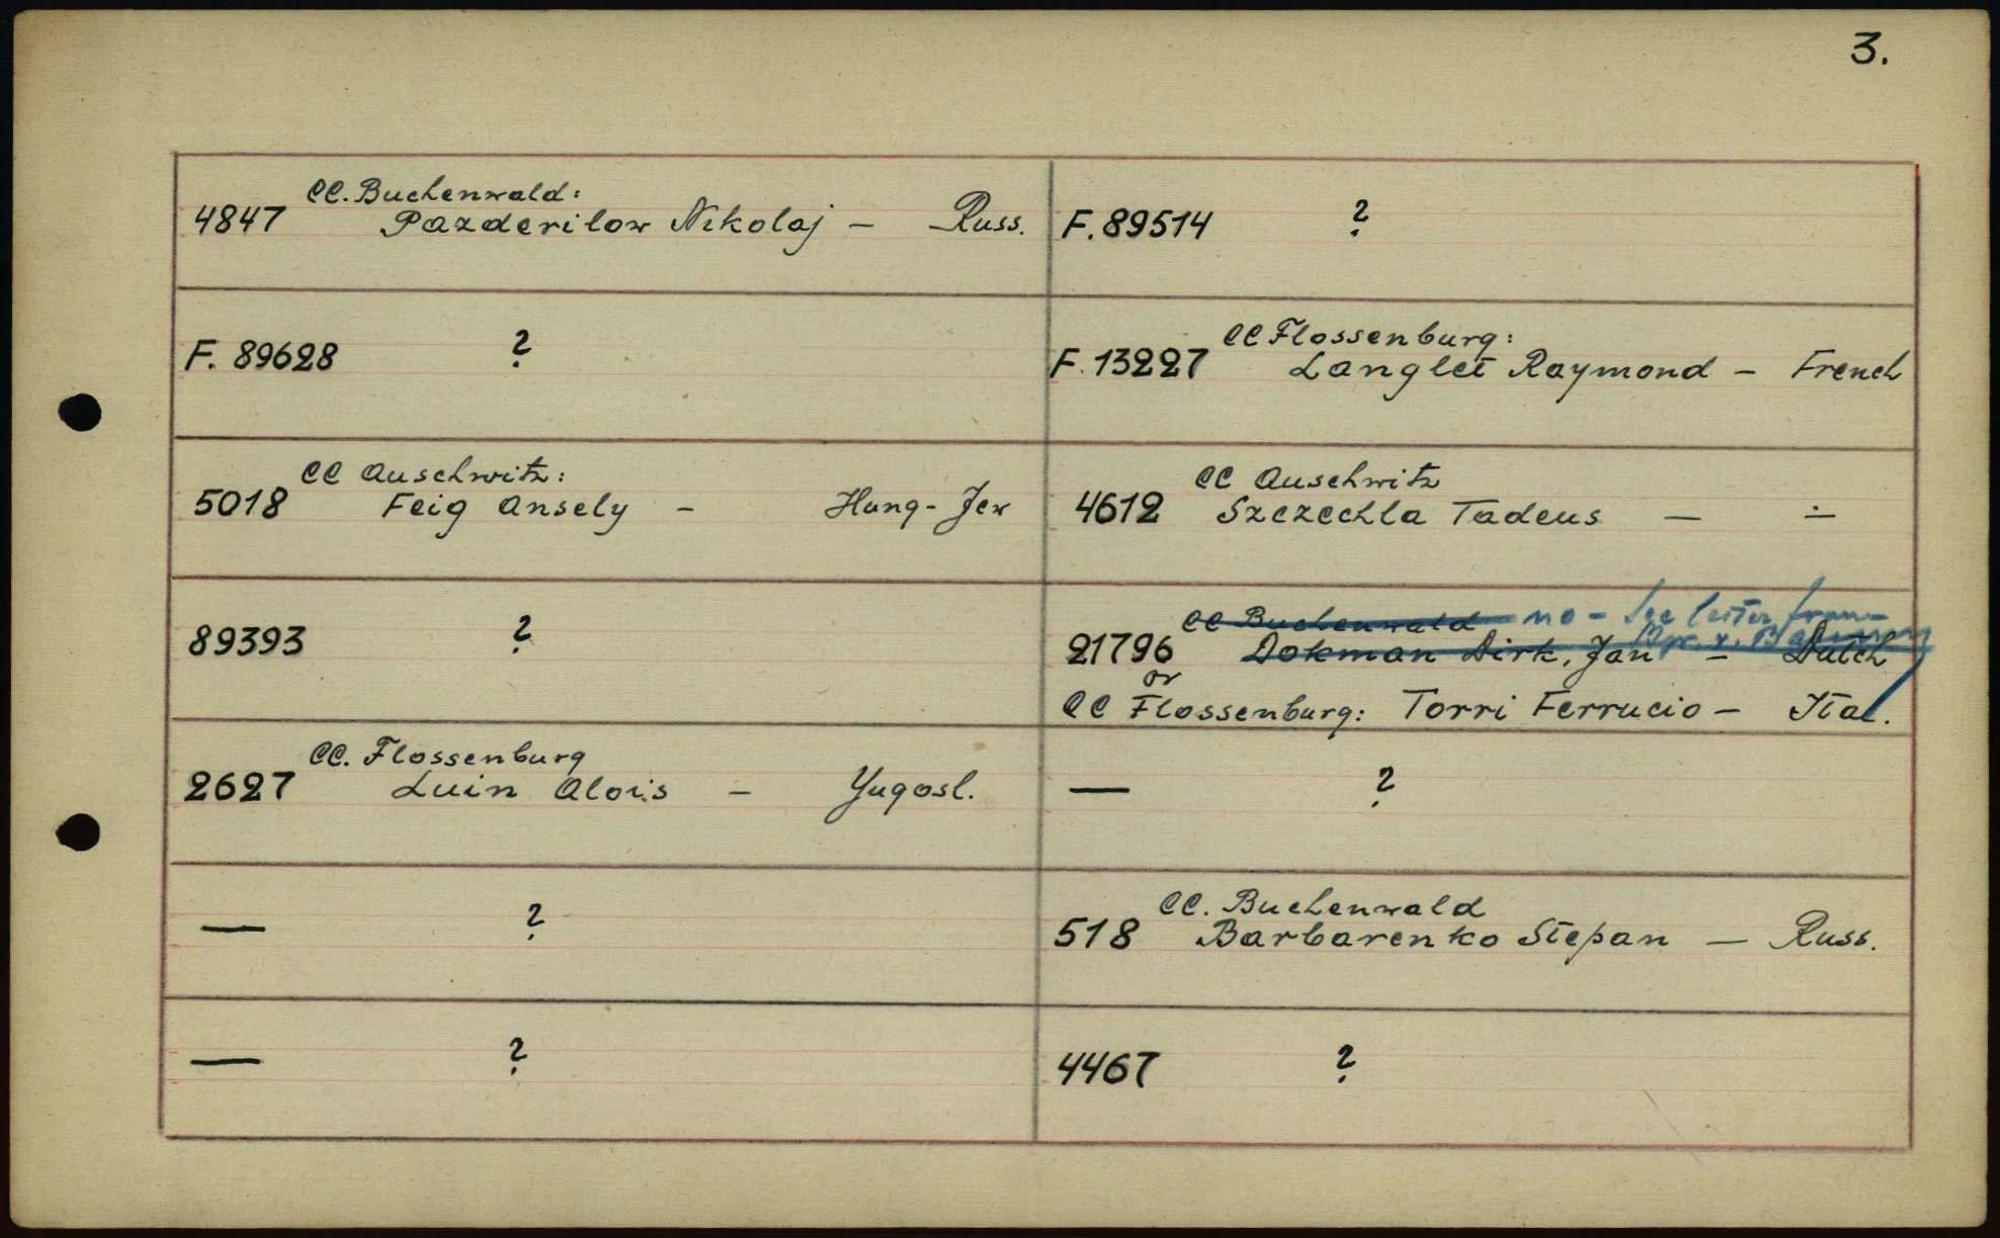 3.
CC. Buchenwald:
4847 Pazderilow Nikolaj — Russ.
F. 89514 ?
F. 89628 ?
CC Flossenburg:
F. 13227 Langlet Raymond — French
CC Auschwitz:
5018 Feig Ansely - Hung-Jew
CC Auschwitz
4612 Szczechla Tadeus — ∸
89393 ?
CC Buchenwald no - See letter from
21796 Dokman Dirk, Jan — Dutch
or
CC Flossenburg: Torri Ferrucio — Ital.
CC. Flossenburg
2627 Luin Alois — Yugosl.
— ?
— ?
CC. Buchenwald
518 Barbarenko Stepan — Russ.
— ?
4467 ?